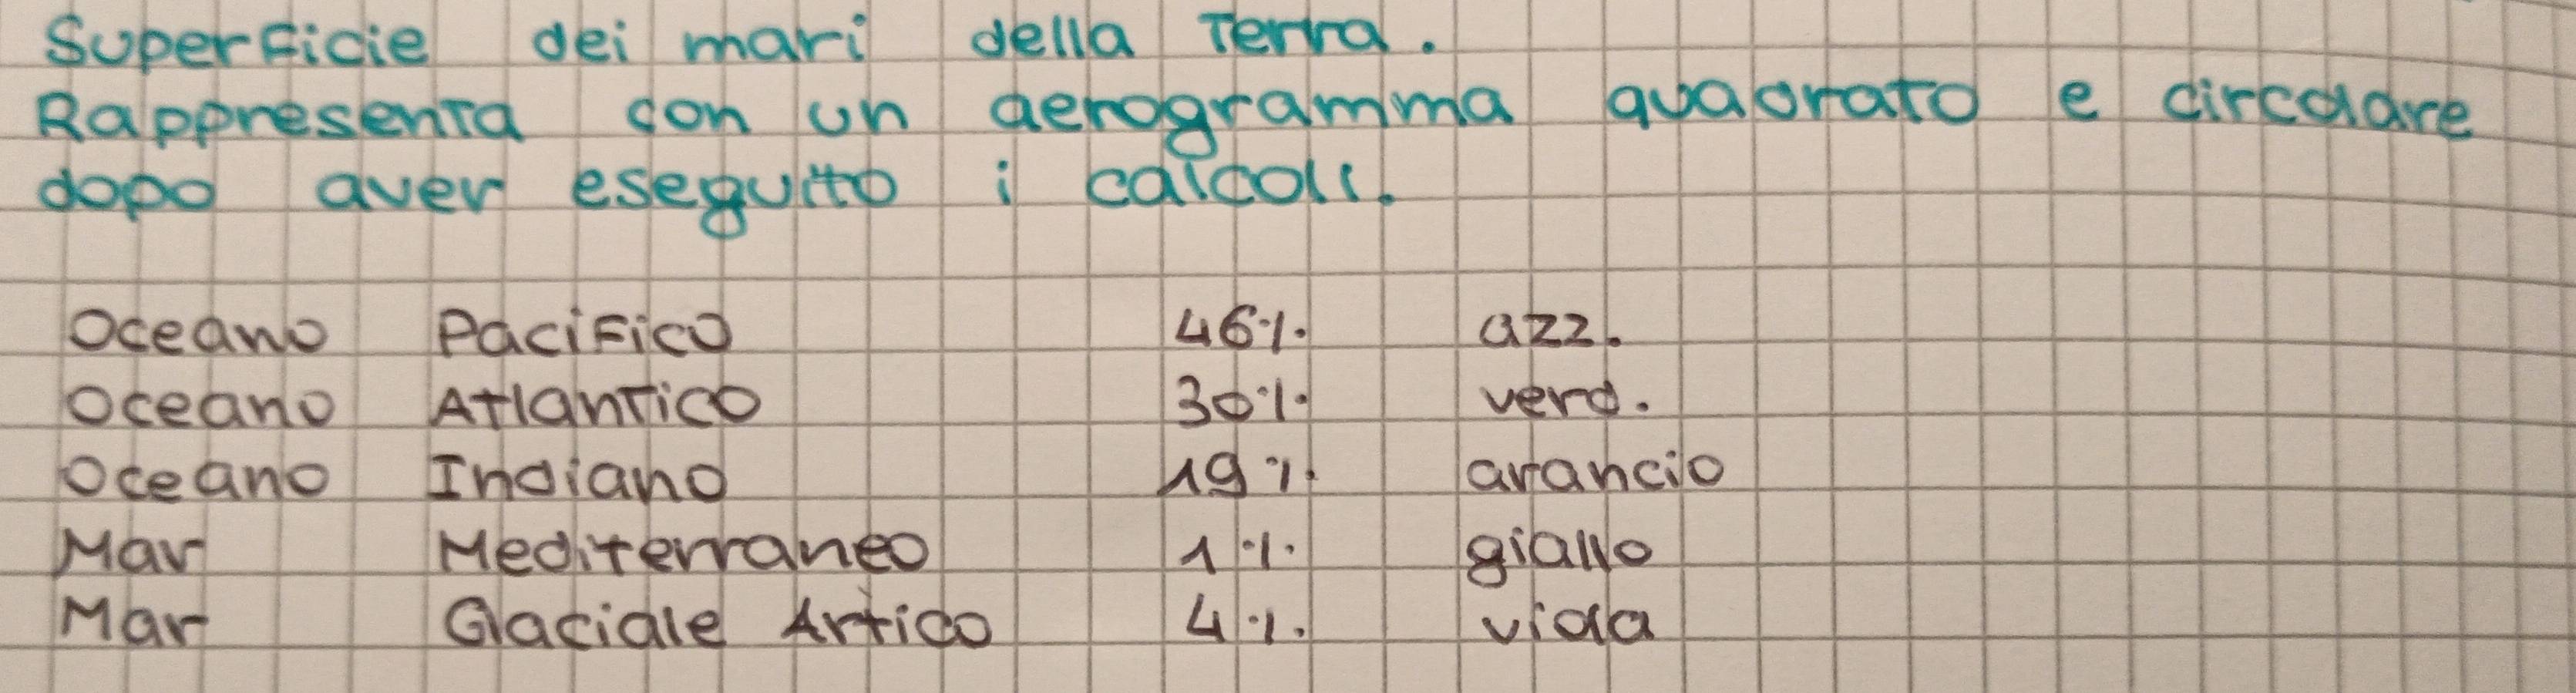 Superficie dei mari della Terra.
Rappresenta con un aerogramma quadrato e circolare
dopo aver eseguito i calcoli.
Oceano Pacifico 46% azz.
Oceano Atlantico 30% verd.
Oceano Indiano 19% arancio
Mar Mediterraneo 1% giallo
Mar Glaciale Artico 4% viola